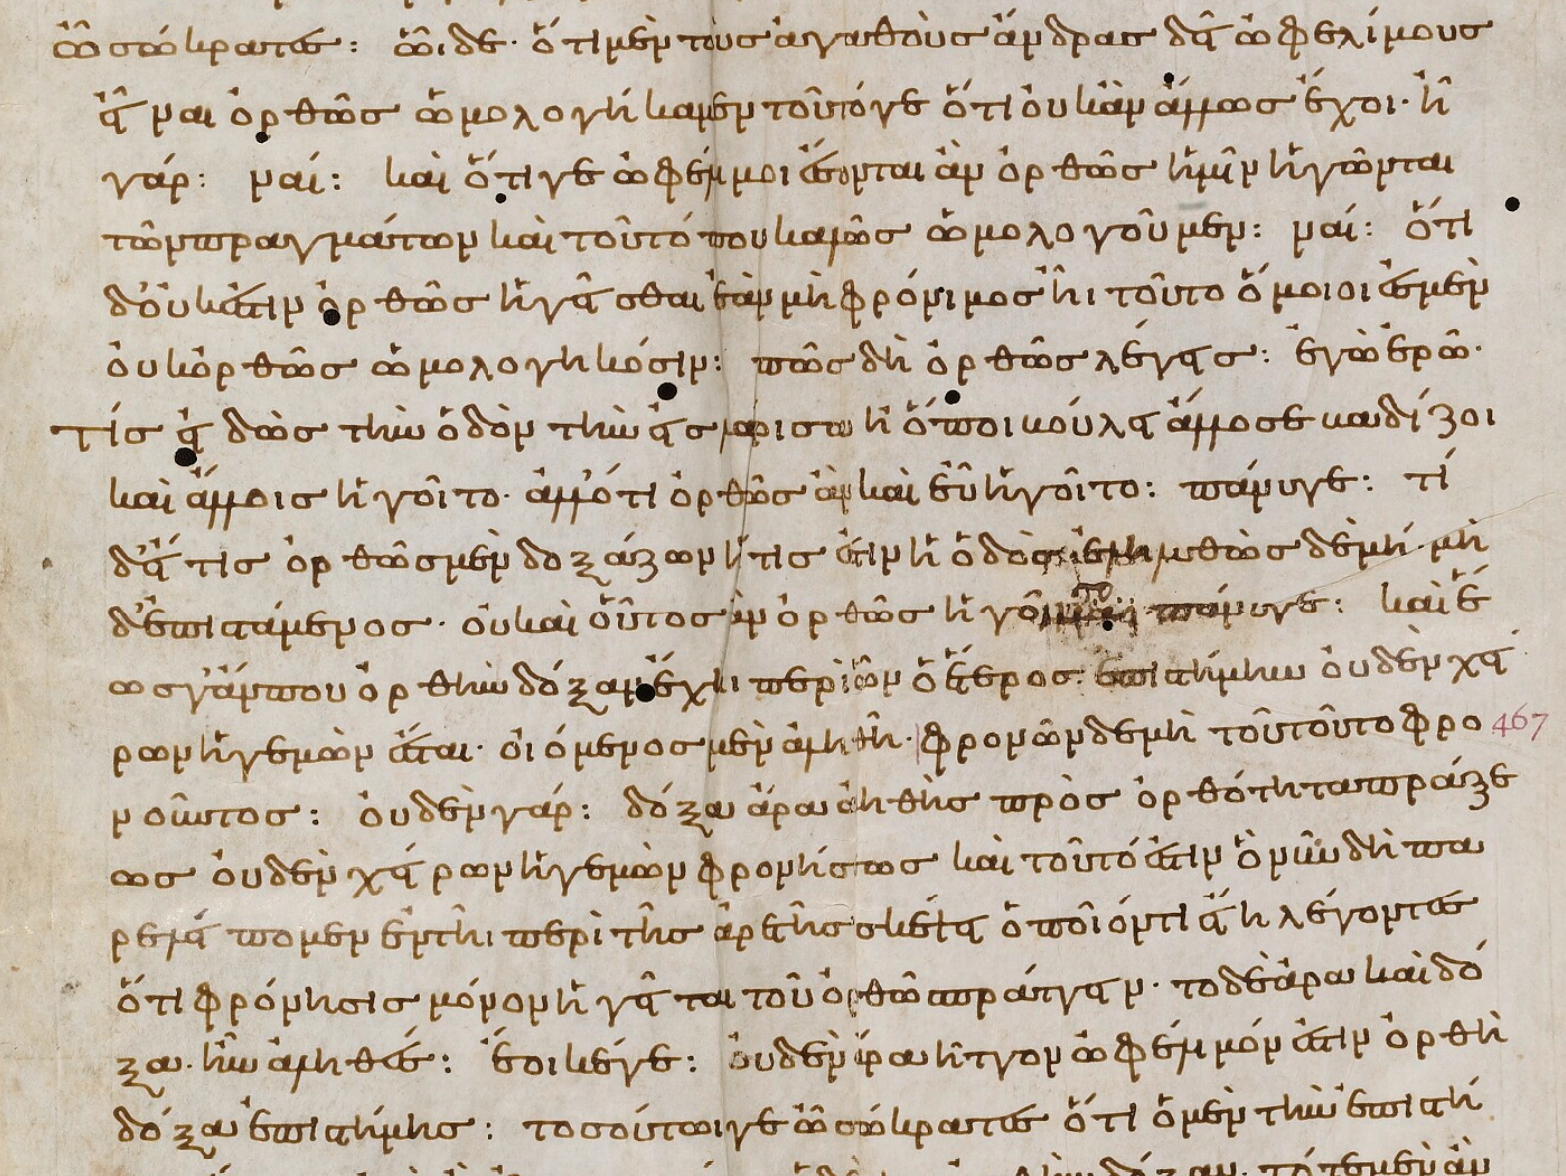 ὦ σώκρατες: ὧδε· ὅτι μὲν τοὺς ἀγαθοὺς ἄνδρας δεῖ ὠφελίμους
εἶναι ὀρθῶς ὡμολογήκαμεν τοῦτό γε ὅτι οὐκ ἂν ἄλλως ἔχοι· ἦ
γάρ: ναί: καὶ ὅτι γε ὠφέλιμοι ἔσονται ἂν ὀρθῶς ἡμῖν ἡγῶνται
τῶν πραγμάτων καὶ τοῦτό που καλῶς ὡμολογοῦμεν: ναί: ὅτι
δ' οὐκ ἔστιν ὀρθῶς ἡγεῖσθαι ἐὰν μὴ φρόνιμος ἦι τοῦτο ὅμοιοί ἐσμεν
οὐκ ὀρθῶς ὡμολογηκόσιν: πῶς δὴ ὀρθῶς λέγεις: ἐγὼ ἐρῶ·
τίς εἰδὼς τὴν ὁδὸν τὴν εἰς λάρισαν ἢ ὅποι βούλει ἄλλοσε βαδίζοι
καὶ ἄλλοις ἡγοῖτο· ἄλλό τι ὀρθῶς ἂν καὶ εὖ ἡγοῖτο: πάνυ γε: τί
δ' εἴ τις ὀρθῶς μὲν δοξάζων ἥτις ἐστὶν ἡ ὁδὸς ἐληλυθὼς δὲ μή· μὴ
δ' ἐπιστάμενος· οὐ καὶ οὗτος ἂν ὀρθῶς ἡγοῖτο: πάνυ γε: καὶ ἕ
ως γ' ἄν που ὀρθὴν δόξαν ἔχηι περὶ ὧν ὁ ἕτερος ἐπιστήμην οὐδὲν χεί
ρων ἡγεμὼν ἔσται· οἰόμενος μὲν ἀληθῆ· φρονῶν δὲ μὴ τοῦ τοῦτο φρο 467
νοῦντος: οὐδὲν γάρ: δόξα ἄρα ἀληθὴς πρὸς ὀρθότητα πράξε
ως οὐδὲν χείρων ἡγεμὼν φρονήσεως καὶ τοῦτό ἐστιν ὃ νῦν δὴ πα
ρελείπομεν ἐν τῆι περὶ τῆς ἀρετῆς σκέψει ὁποῖόν τι εἴη λέγοντες
ὅτι φρόνησις μόνον ἡγεῖται τοῦ ὀρθῶς πράττειν· τὸ δὲ ἄρα καὶ δό
ξα· ἦν ἀληθές: ἔοικέ γε: οὐδὲν ἄρα ἧττον ὠφέλιμόν ἐστιν ὀρθὴ
δόξα ἐπιστήμης: τοσούτωι γε ὦ σώκρατες ὅτι ὁ μὲν τὴν ἐπιστή